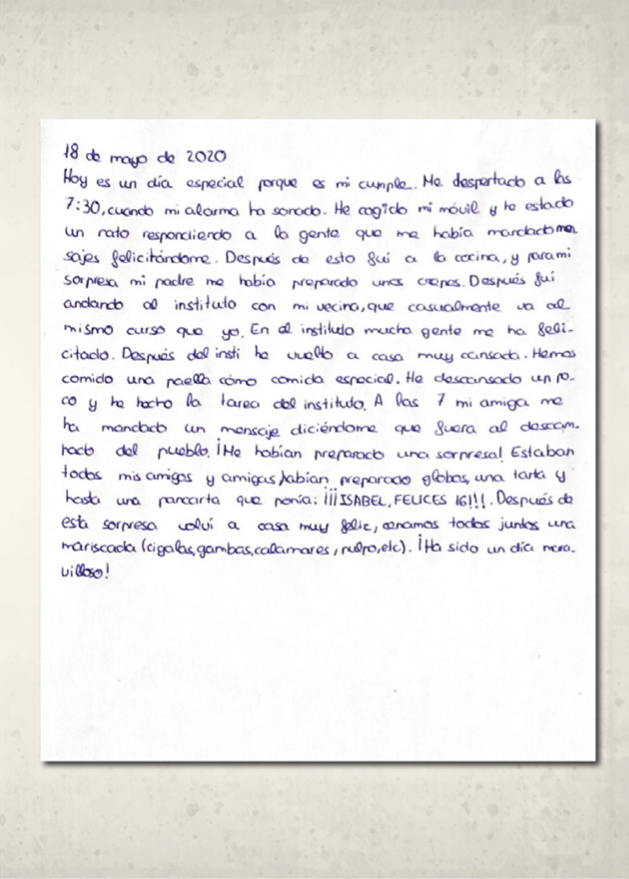 18 de mayo de 2020
Hoy es un día especial porque es mi cumple. Me despertado a las
7:30, cuando mi alarma ha sonado. He cogido mi móvil y he estado
un rato respondiendo a la gente que me había mandado men
sajes felicitándome. Después de esto fui a la cocina, y para mi
sorpresa mi padre me había preparado unos crepes. Después fui
andando al instituto con mi vecina, que casualmente va al
mismo curso que yo. En el instituto mucha gente me ha feli-
citado. Después del insti he vuelto a casa muy cansada. Hemos
comido una paella cómo comida especial. He descansado un po-
co y he hecho la tarea del instituto. A las 7 mi amiga me
ha mandado un mensaje diciéndome que fuera al descam-
pado del pueblo. ¡Me habían preparado una sorpresa! Estaban
todos mis amigos y amigas, habían preparado globos, una tarta y
hasta una pancarta que ponía: ¡¡¡ISABEL, FELICES 16!!!. Después de
esta sorpresa volví a casa muy feliz, cenamos todos juntos una
mariscada (cigalas, gambas, calamares, pulpo, etc). ¡Ha sido un día mara-
villoso!